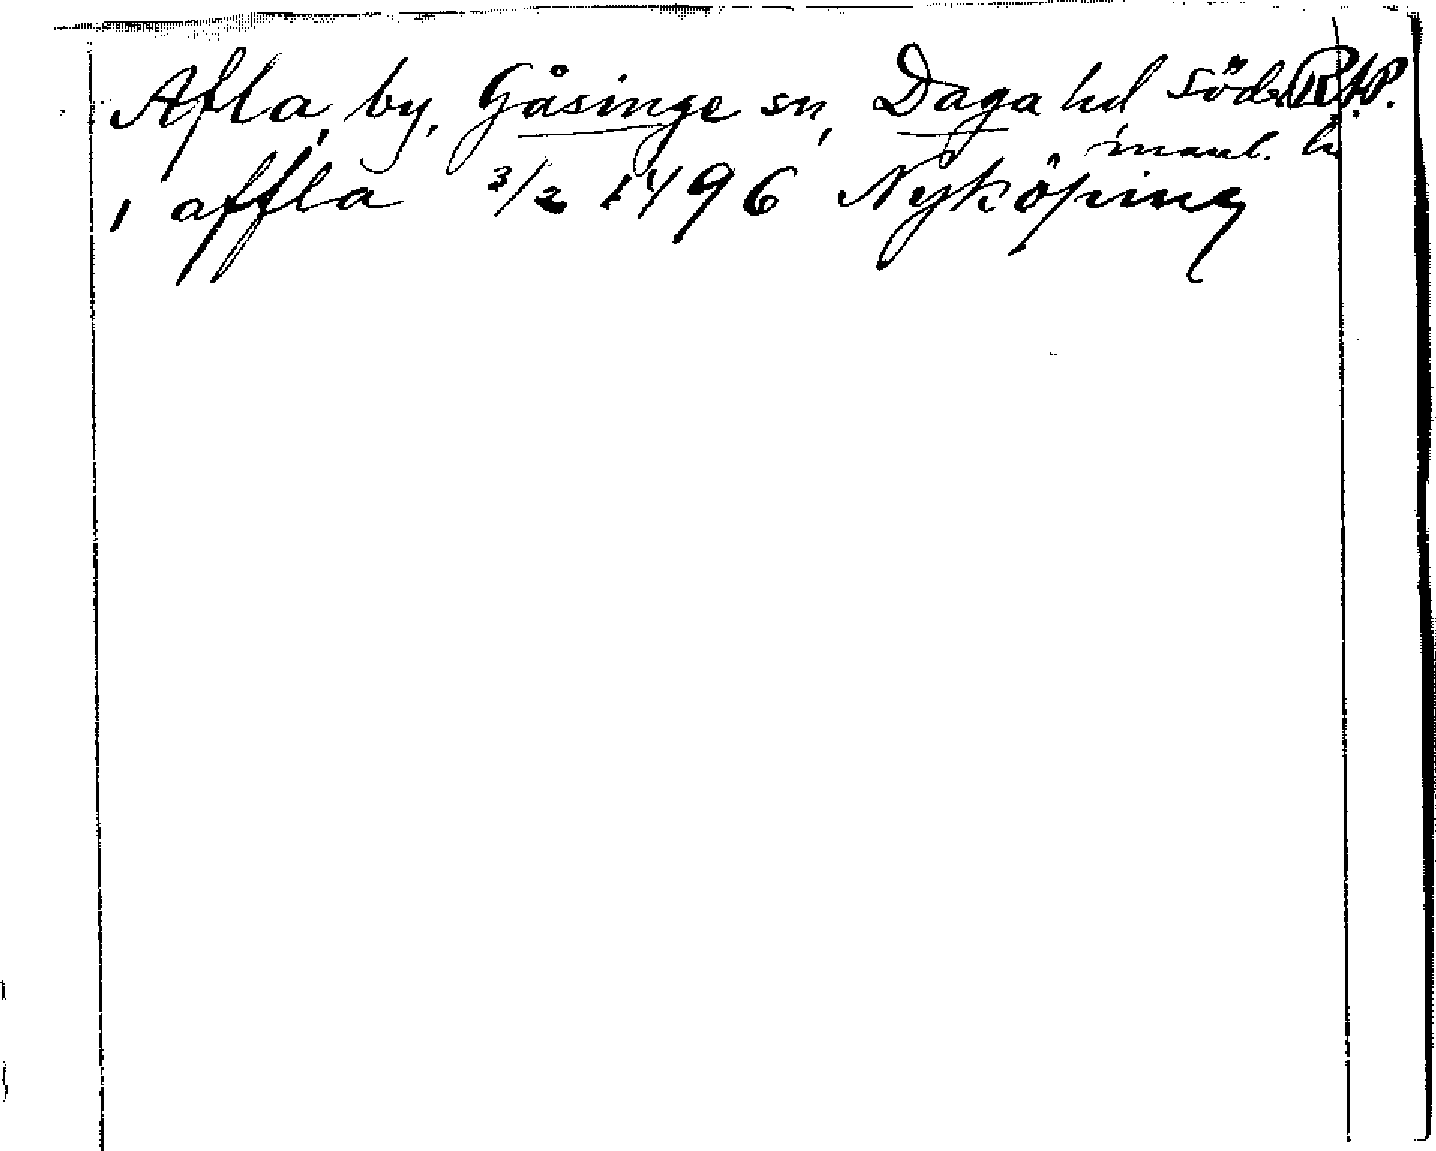 Afla, by, Gåsinge sn, Daga hd Söde RAP.
manl. h
, affla 3/2 1496 Nyköping